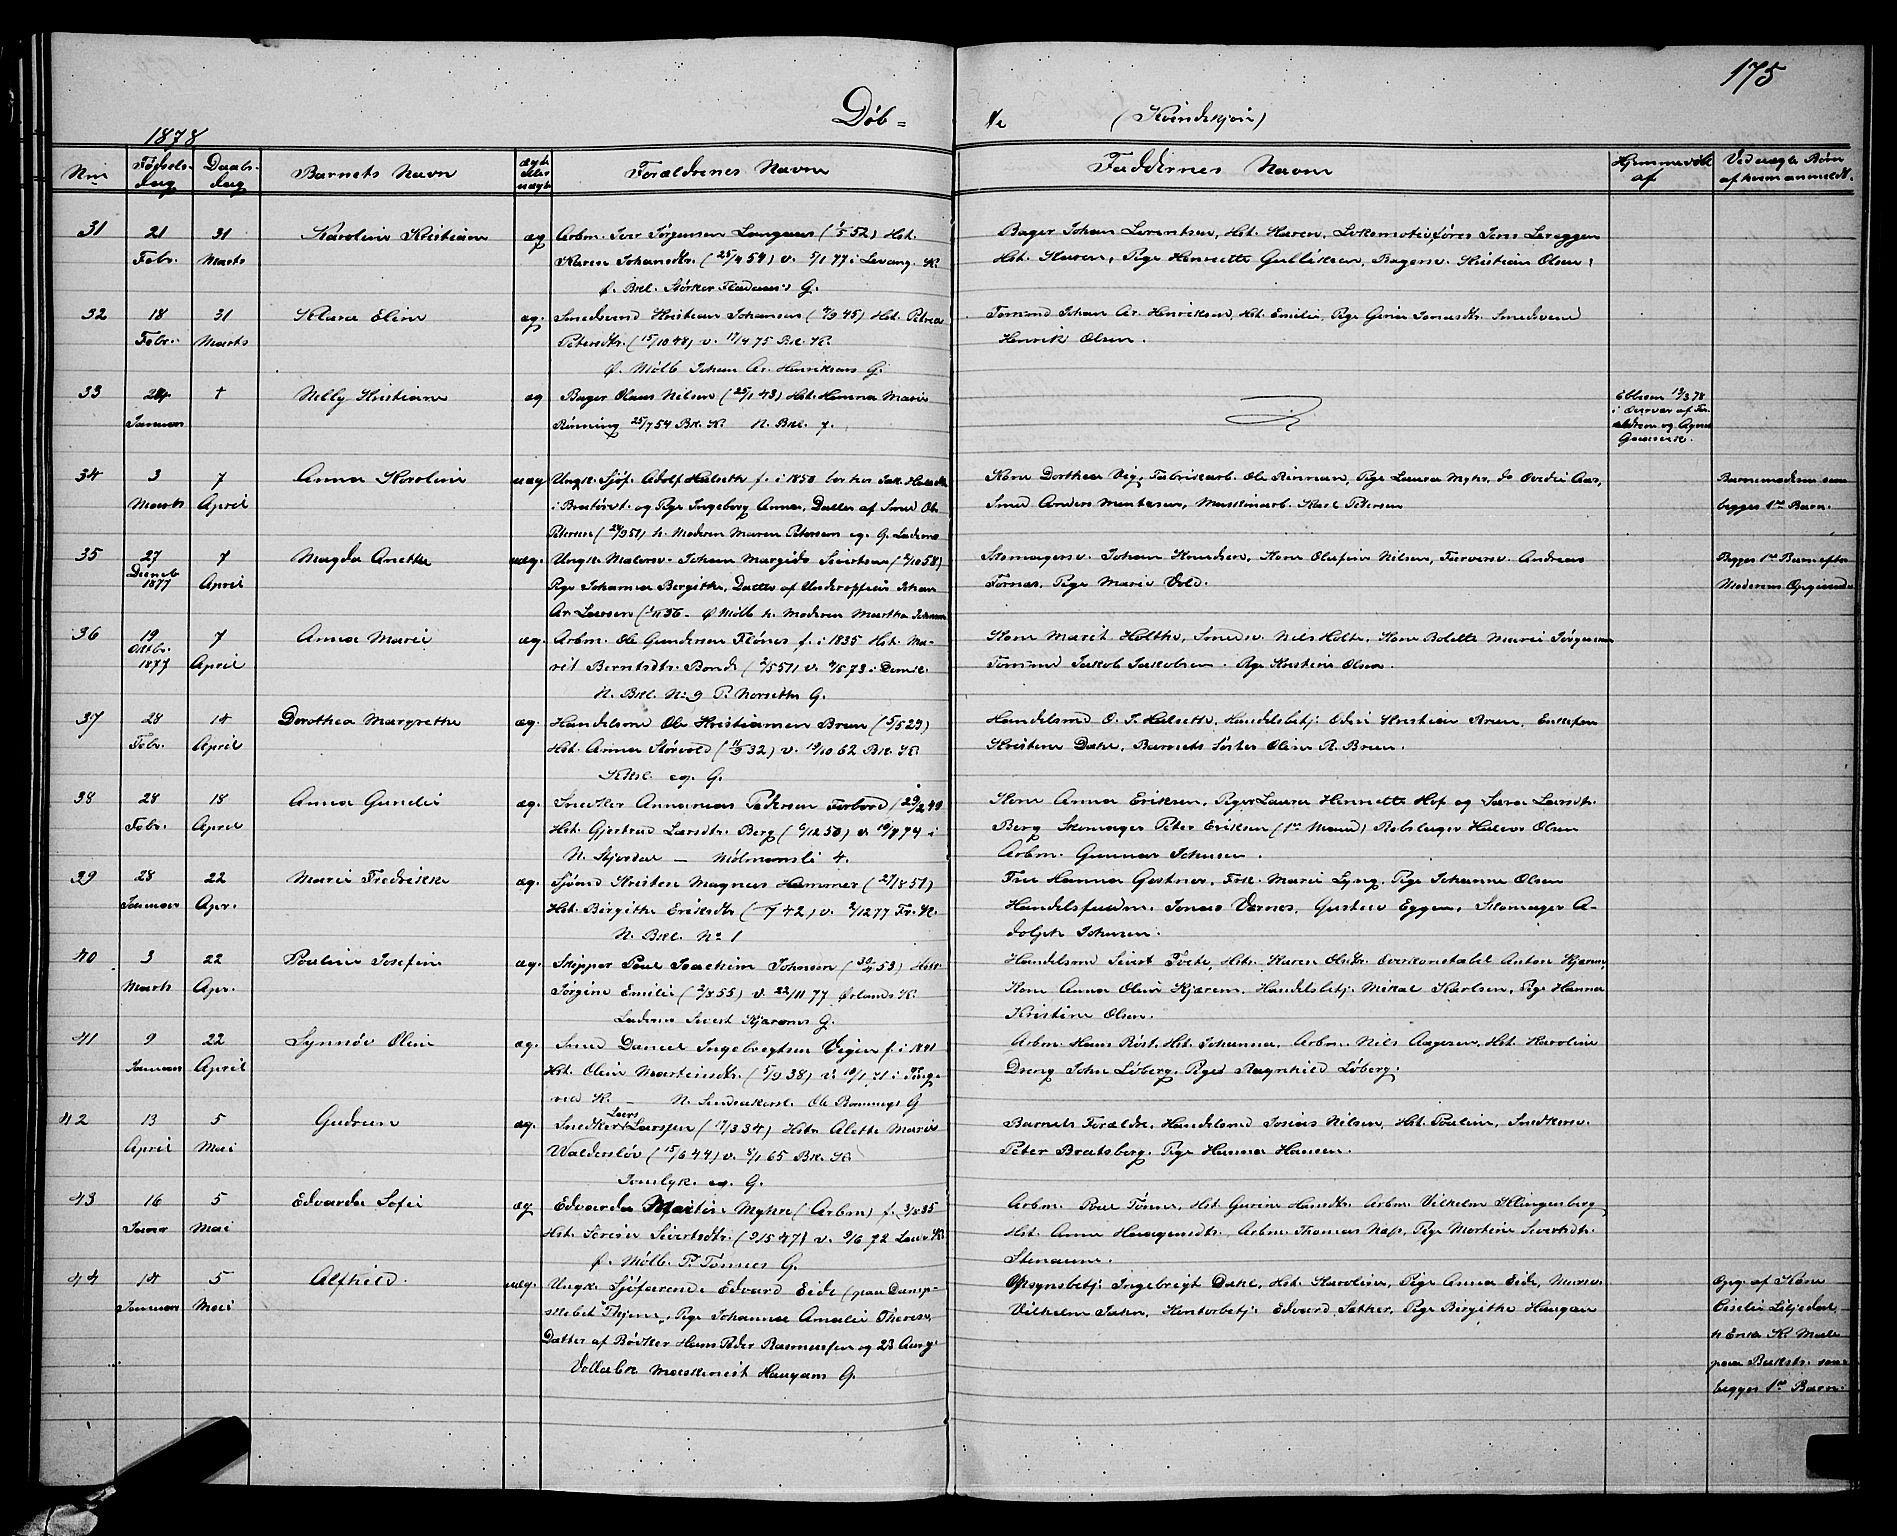 175
Døb= te (Kvindekjøn)
1878
Nm Fødsels- dag Daabs- dag Barnets Navn ægte eller uægte Forældrenes Navn Faddernes Navn Hjemmedøbt af Ved uægte Børn af hvem anmeldt.
31 21 Febr. 31 Marts Karoline Kristiane æg
Arbm. Iver Jørgensen Langaas (1/5 52) Hst.
Karen Johansdtr. (25/4 54) v. 5/1 77 i Levang. K.
Ø. Bkl. Størker Fladaas G.
Bager Johan Lorentsen, Hst. Karen, Lokomotivfører Jens Lereggen
Hst. Karen, Pige Henriette Gulliksen, Bagersv. Kristian Olsen.
32 18 Febr. 31 Marts Klara Eline æg.
Smedsvend Kristian Johansen (7/9 45) Hst. Petrea
Petersdtr. (15/10 48) v. 17/4 75 Bk. K.
Ø. Mølb Johan Ar. Henriksens G.
Tømmd Johan Ar. Henriksen, Hst. Emilie, Pige Gina Jonasdtr. Smedsvend
Henrik Olsen.
33 24 Januar † Nelly Kristiane æg
Bager Olaus Nilsen (25/1 43) Hst. Hanna Marie
Rønning 25/7 54 Bk. K. N. Bkl. 7.
Eblsen 13/3 78
i Overvær af For-
ældrene og Agnes
34 3 Marts 7 April Anna Karoline uæg
Ungk. Sjøf. Adolf Halseth f. i 1850 bor hos Jak. Halseth
i Bratøret. og Pige Ingeborg Anna, Datter af Smed Ole
Petersen (24/9 51) h. Moderen Maren Petersen eg. G. Ladems
Kone Dorthea Vig, Fabrikarb. Ole Rinnan, Pige Laura Myhr, do Ovedie Aas,
Smed Anders Mentzen, Maskinarb. Karl Petersen
Barnemoderen som
begges 1ste Barn.
35 27 Decemb 1877 7 April Magda Anette uæg.
Ungk. Malersv. Johan Margido Sivertsen (2/10 58)
Pige Johanna Bergithe, Datter af Underofficer Johan
Ar. Larsen (1/11 56 - Ø Mølb h. Moderen Martha Johnsen
Skomagersv. Johan Knudsen, Kone Olufine Nilsen, Farversv. Andreas
Tømaas, Pige Marie Vold.
Begges 1ste Barn efter
Moderens Opgivende
36 19 Oktbr. 1877 7 April Anna Marie æg.
Arbm. Ole Gundersen Flønes f. i 1835 Hst. Ma-
rit Berntsdtr. Bonde v. 9/5 73 i Domk.
N. Bkl. No 9 P. Norseths G.
Kone Marit Holthe, Smedsv. Nils Holte, Kone Bolette Marie Jørgensen
Tømmd Jakob Jakobsen. Pige Kristine Olsen.
37 28 Febr. 14 April Dorothea Margrethe æg.
Handelsmd Ole Kristiansen Bruun (5/5 23)
Hst. Anna Storvold (11/3 32) v. 19/10 62 Bk. K.
eg. G.
Handelsmd O. J. Halseth, Handelsbetj. Odin Kristian Bruun, Enkefru
Kristine Dahl, Barnets Søster Oline A. Bruun.
38 28 Febr. 18 April Anna Gundie æg.
Snedker Annanias Pedersen Forbord (29/2 40
Hst. Gjertrud Larsdtr. Berg (6/12 50) v. 19/9 74 i
N. Stjordal — Mølmannsli 4.
Kone Anna Eriksen, Piger Laura Henriette Hof og Sara Larsdtr.
Berg Skomager Peter Eriksen (1ste Mand) Rebslager Halvor Olsen
Arbm. Gunnar Johnsen.
39 28 Januar 22 Apr. Marie Fredrikke æg.
Sjømd Kristen Magnus Hammer (27/8 51)
Hst. Birgithe Eriksdtr (—/7 42) v. 2/12 77 Fr. K.
N. Bkl. No 1
Fru Hanna Gestner, Frk. Marie Lyng, Pige Johanne Olsen
Handelsfuldm. Jonas Værnes, Gustav Eggen, Skomager A-
dolph Johnsen.
40 3 Marts 22 Apr. Pauline Josefine æg.
Skipper Paul Joachim Johnsen (30/4 53) Hst.
Jørgine Emilie (2/8 55) v. 22/11 77 Ørlands K.
Ladems Sivert Kjærems G.
Handelsmd Sivert Tvete, Hst. Karen Olsdtr. Overkonstabel Anton Kjærem,
Kone Anna Oline Kjærem, Handelsbetj. Mikal Karlsen, Pige Hanna
Kristine Olsen.
41 9 Januar 22 April Synnøv Oline æg.
Smed Daniel Ingebregtsen Vigen f. i 1841
Hst. Oline Martinsdtr. (5/9 38) v. 19/1 71 i Ting-
vold K. — N. Ole Rønnings G
Arbm. Hans Røst, Hst. Johanna, Arbm. Nils Aagesen, Hst. Karoline
Dreng John Løberg, Piges Ragnhild Løberg.
42 13 April 5 Mai Gudrun æg.
Snedker Lars Larssen (7/3 34) Hst. Alette Marie
Walderslöv (15/6 44) v. 8/1 65 Bk. K
Ionslyk. eg. G.
Barnets Forældre, Handelsmd Josias Nilsen, Hst. Pauline, Snedkersv.
Peter Bratsberg. Pige Hanna Hansen.
43 16 Januar 5 Mai Edvarda Sofie æg
Edvarda Martin Myhre (Arbm) f. 3/8 35
Hst. Serine Sivertsdtr. (9/5 47) v. 9/6 72 Lade K.
Ø. Mølb. P. Tønnes G.
Arbm. Paul Tønne, Hst. Gurine Hansdtr. Arbm. Vilhelm Klingenberg
Hst. Anne Haagensdtr., Arbm. Thomas Næss, Pige Martine Sivertsdtr.
Stenaune.
44 14 Januar 5 Mai Alfhild. uæg.
Ungk. Sjøfarende Edvard Eide (paa Damp-
skibet "Thjem", Pige Johanna Amalie Therese,
Datter af Bødker Hans Peder Rasmussen og 23 Aar g.
Vollabk Maskinist Haugans G.
Opsynsbetj. Ingebregt Dahl, Hst. Karoline, Pige Anna Eide, Murer
Vilhelm Jahn, Kontorbetj. Edvard Sæther, Pige Birgithe Haugan
Opg. af Kone
Ciselie Liljedal,
h Enke K. Moe
paa Bakstr. som
begges 1ste Barn.